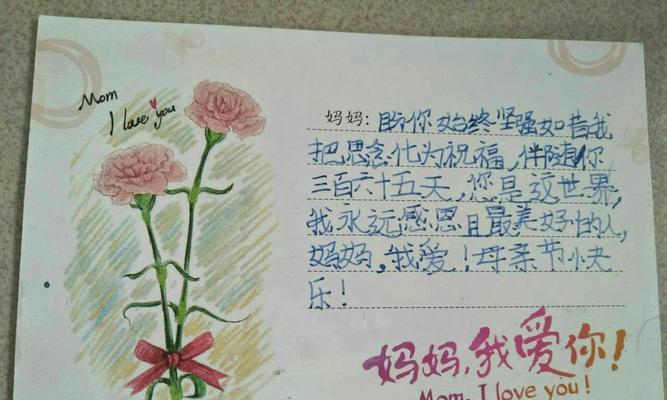 Mom
I love you
妈妈：盼你始终坚强如昔我
把思念化为祝福，伴随你
三百六十五天，您是这世界，
我永远感恩且最美好的人，
妈妈，我爱！母亲节小夬
乐！
妈妈，我爱你！
Mom, I love you!